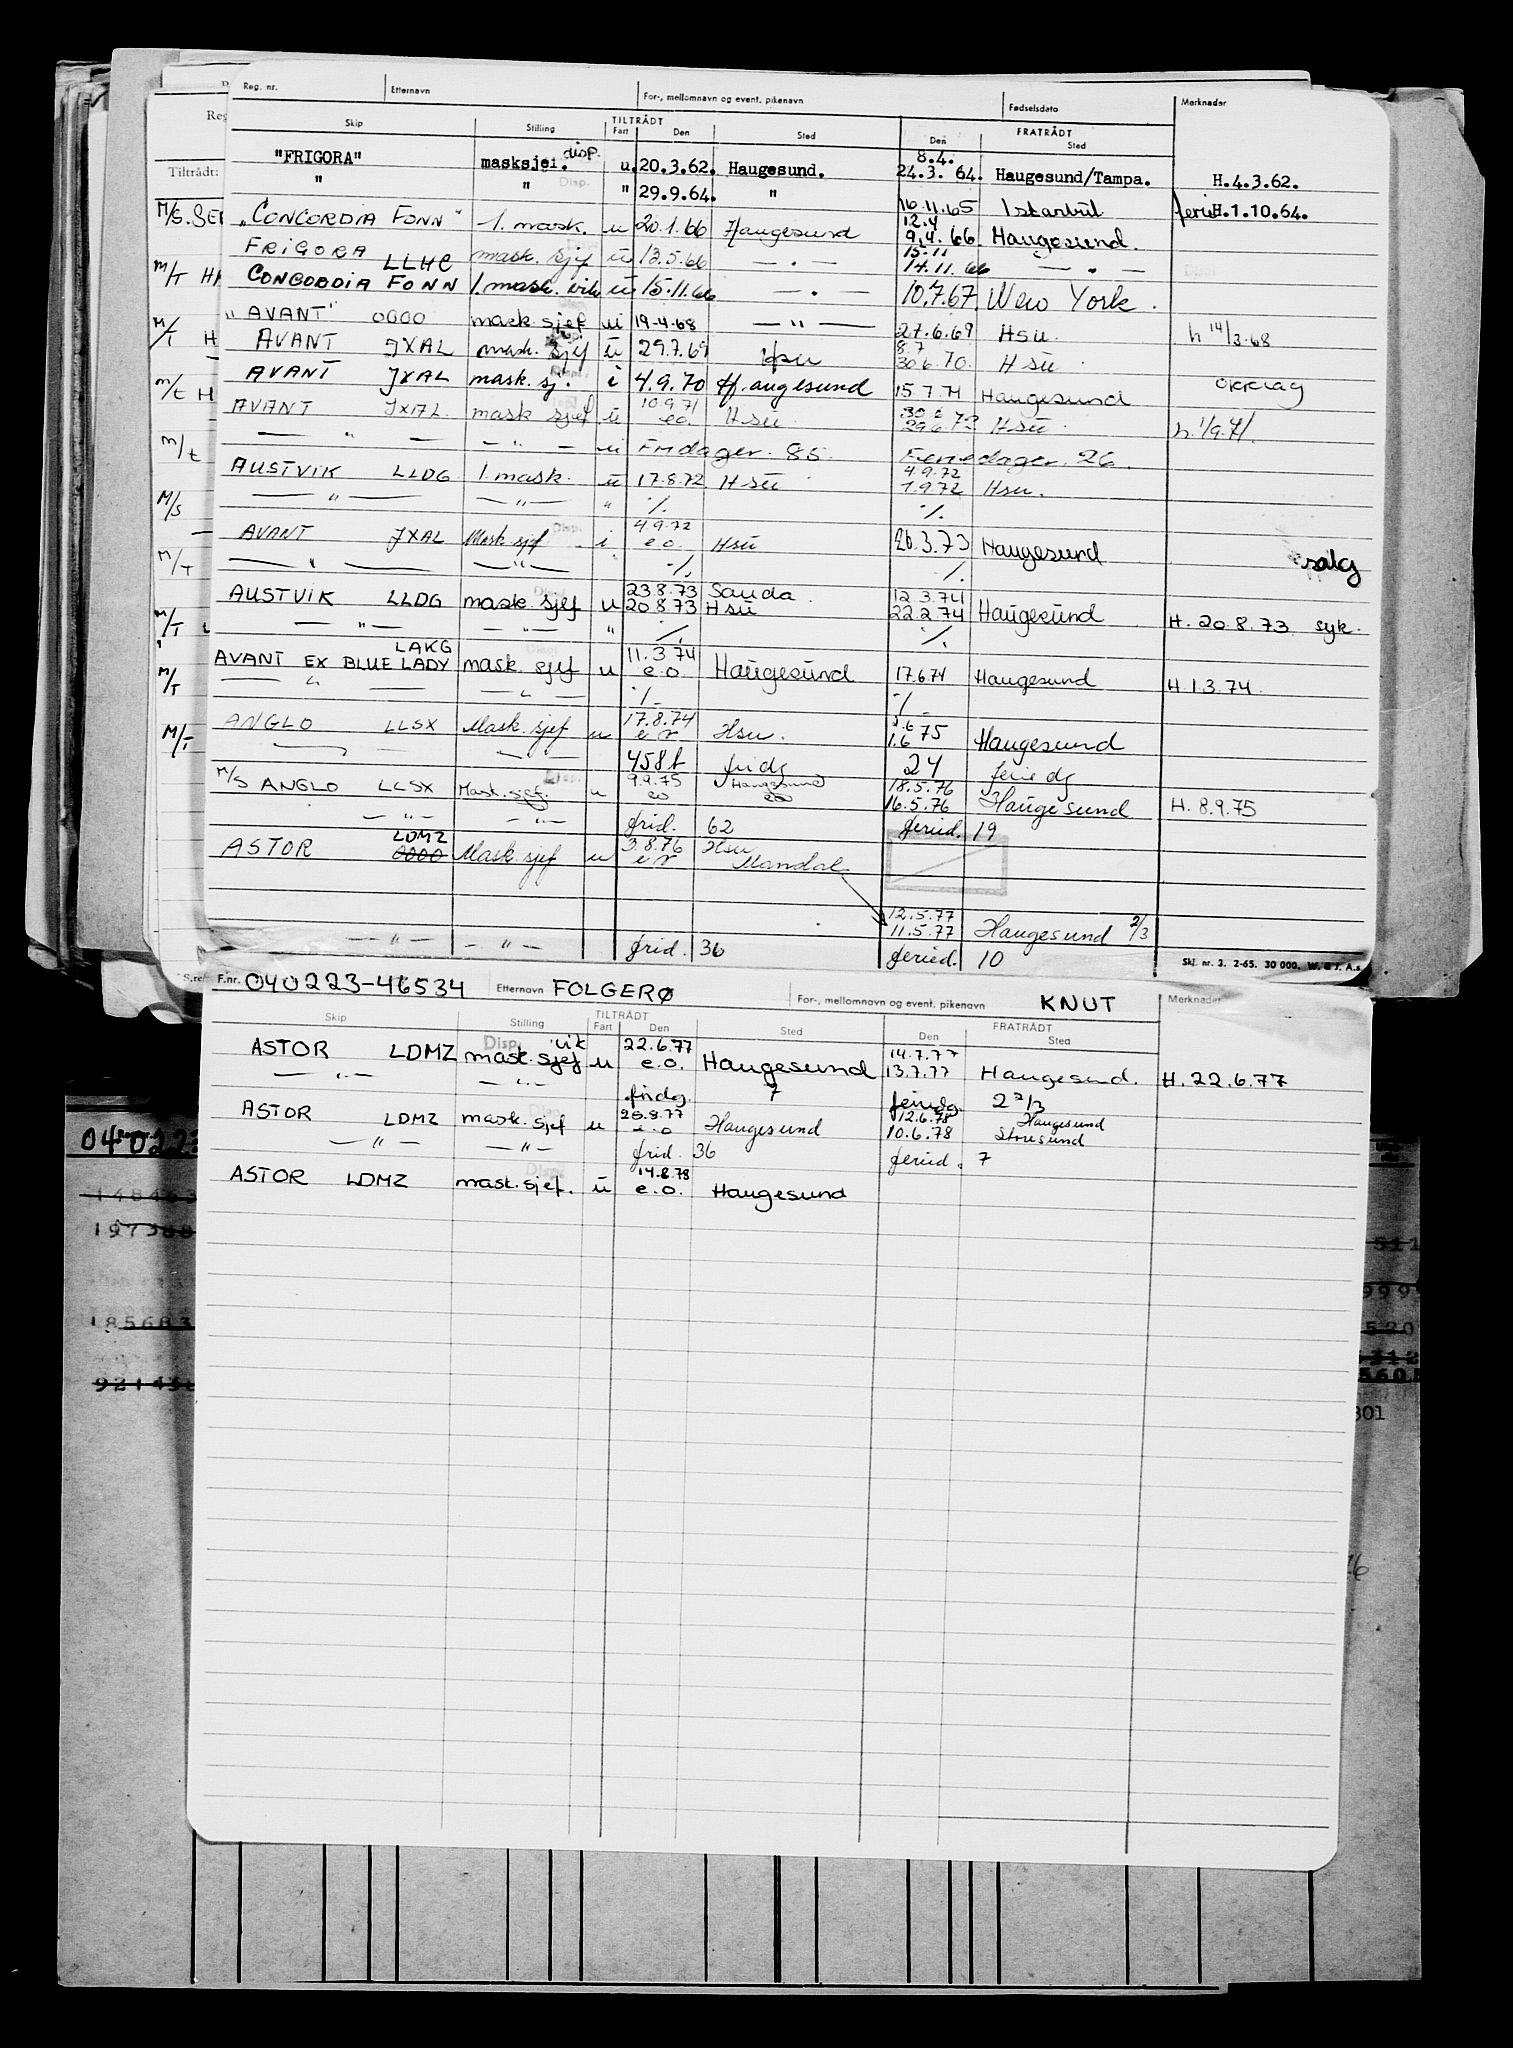 Reg. nr. Etternavn For-, mellomnavn og event. pikenavn Fødselsdato Merknader
Skip Stilling TILTRÅDT Fart Den Sted FRATRÅDT Den Sted
"FRIGORA" masksjef. disp. u. 20.3.62. Haugesund. 8.4. 24.3. 64. Haugesund/Tampa. H.4.3.62.
" " " 29.9.64. " 16.11.65 Istanbul ferie H.1.10.64.
"CONCORDIA FONN" 1. mask. u 20.1.66 Haugesund 12.4 9.4.66 Haugesund.
FRIGORA LLHC mask. sjef ü 13.5.66 — " — 15.11 14.11.66 — " —
CONCORDIA FONN 1. mask. vik ü 15.11.66 — " — 10.7.67 New York.
"AVANT" 0000 mask. sjef u 19-4-68 — " — 27.6.69 Hsu. h 14/3-68
AVANT JXAL mask. sjef ü 29.7.69 Hsu 8.7 30.6.70. Hsü
AVANT JXAL mask. sj. i 4.9.70 Haugesund 15.7.71 Haugesund
AVANT JXAL. mask sjef ü 10.9.71 e.o. Hsü 29.6.72 Hsü. h. 1/9.71.
— " — — " — u Fridager. 85 Feriedager. 26.
AUSTVIK LLDG 1 mask. ü 17.8.72 Hsü 4.9.72 1.9.72 Hsu.
— " — — " — " ./. ./.
AVANT JXAL Mask sjef i 4.9.72 e.o. Hsü 26.3.73 Haugesund salg
— " — — " — ./. ./.
AUSTVIK LLDG mask. sjef u 23.8.73 20.8.73 Sauda Hsü 12.3.74 22.2.74 Haugesund H. 20.8.73 syk.
— " — — " — " ./. ./.
LAKG
AVANT EX BLUE LADY mask. sjef u 11.3.74 e.o. Haugesund 17.6.74 Haugesund H.1.3.74.
— " — — " — ./. ./.
ANGLO LLSX Mask. sjef u 17.8.74 Hsu. 1.6 75 Haugesund
458t fridg 24 feriedg
M/S ANGLO LLSX Mask. sjef. u 9.9.75 eo Haugesund eo 18.5.76 16.5.76 Haugesund H. 8.9.75
— " — — " — frid. 62 feried. 19
ASTOR LDMZ 0000 Mask. sjef u 3.8.76 Hsu
Mandal
12.5.77 11.5.77 Haugesund 2/3
— " — — " — frid. 36 feried. 10
Skl. nr. 3. 2-65. 30 000. W. & J. A.s
F.nr. 040223-46534 Etternavn FOLGERØ For-, mellomnavn og event. pikenavn KNUT Merknader
Skip Stilling TILTRÅDT Fart Den Sted FRATRÅDT Den Sted
ASTOR LDMZ Disp. vik mask. sjef u 22.6.77 e.o. Haugesund 14.7.77 13.7.77 Haugesund. H.22.6.77
— " — — " — fridg. 7 feriedg. 2 2/3
ASTOR LDMZ mask. sjef u e.o Haugesund 12.6.78 10.6.78 Haugesund Storesund
— " — — " — frid. 36 feried. 7
ASTOR LDMZ mask. sjef. ü 14.8.78 e.o. Haugesund